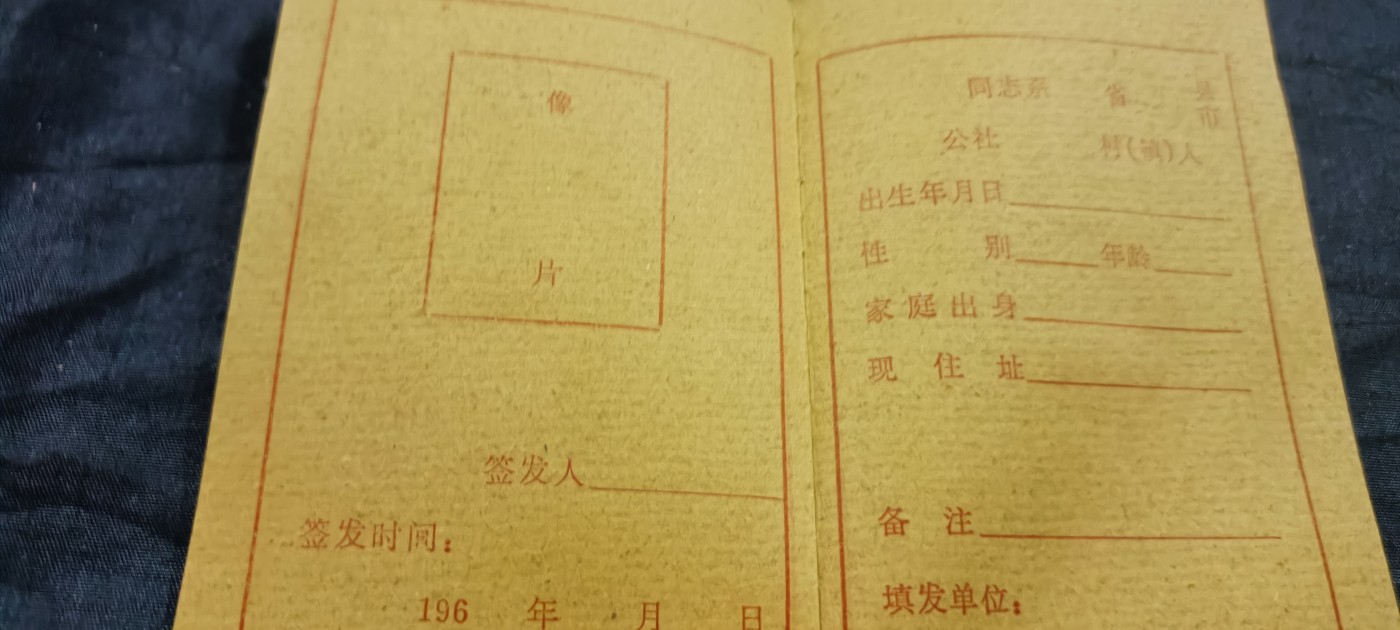 像
片
签发人
签发时间：
196 年 月 日
同志系 省 县
市
公社 村(镇)人
出生年月日
性 别 年龄
家庭出身
现住址
备注
填发单位：